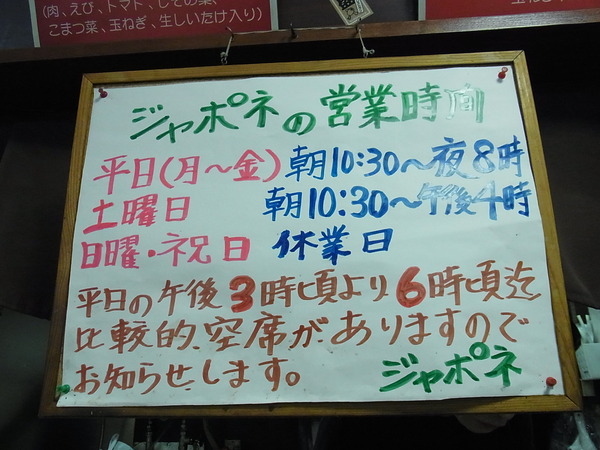 (肉、えび、トマト、しその葉、
こまつ菜、玉ねぎ、生しいたけ入り)
ジャポネの営業時間
平日(月〜金)朝10:30〜夜8時
土曜日 朝10:30〜午後4時
日曜・祝日 休業日
平日の午後3時頃より6時頃迄
比較的、空席がありますので
お知らせします。 ジャポネ